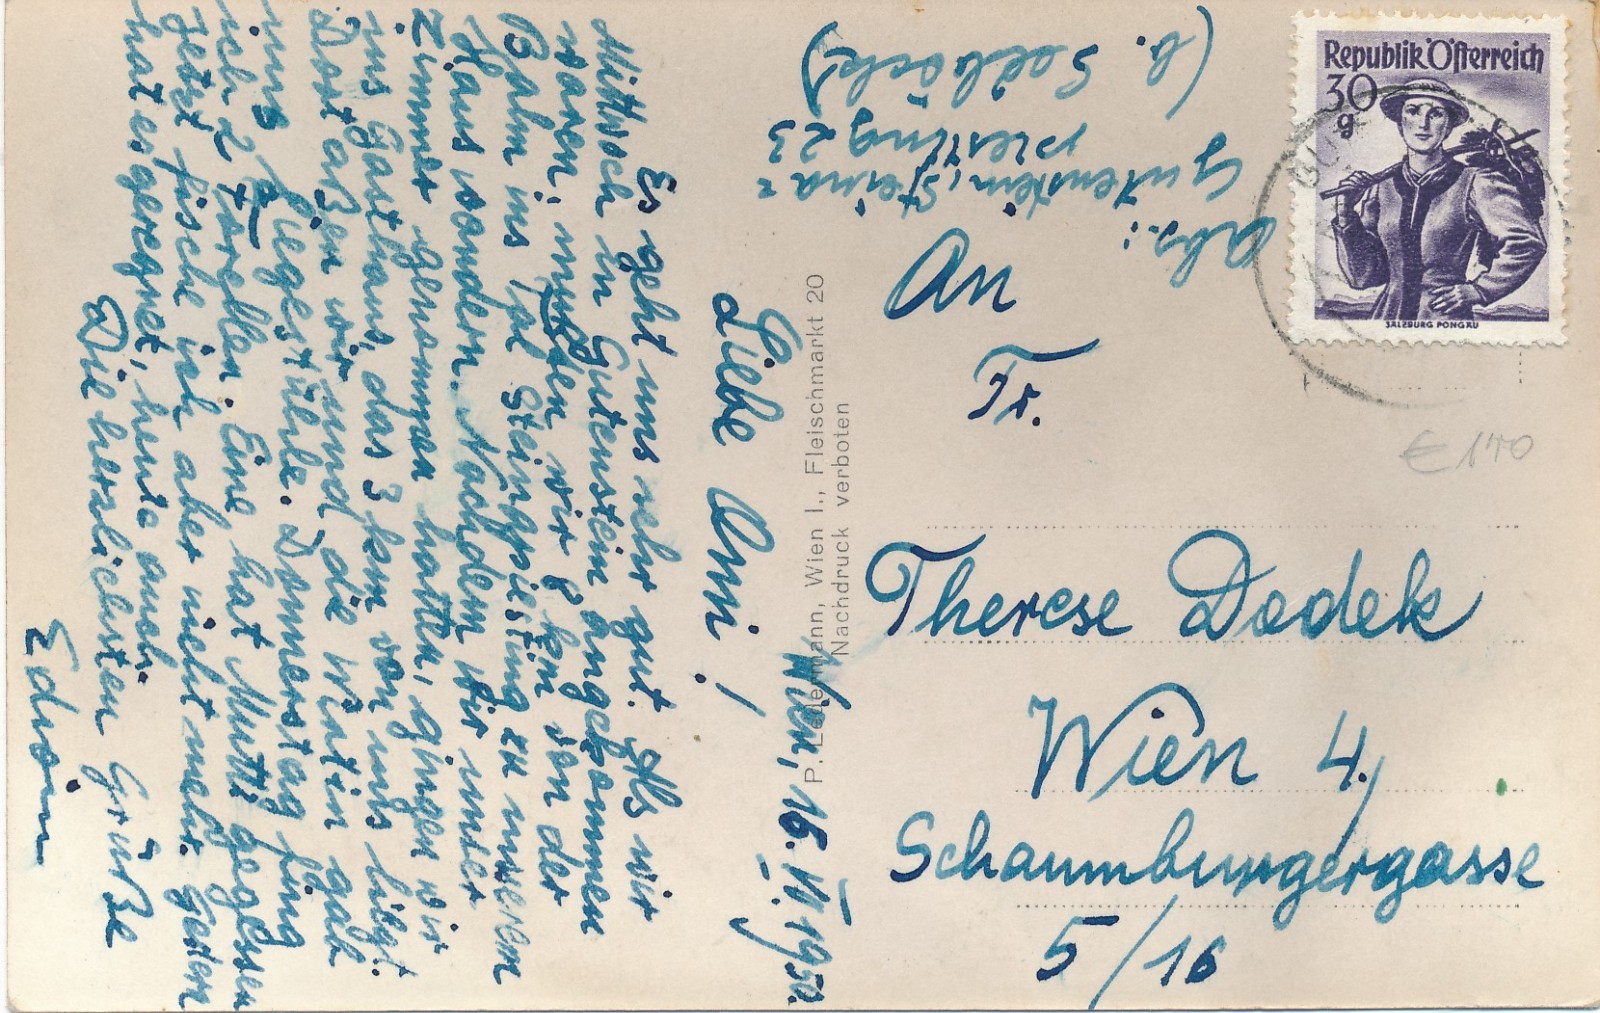 Wien, 16. VI. 1950.
Liebe Omi!
Es geht uns sehr gut. Als wir
Mittwoch in Gutenstein angekommen
waren, mußten wir 8 km von der
Bahn ins Tal Steinapiesting zu unserem
Haus wandern. Nachdem wir unser
Zimmer genommen hatten, gingen wir
ins Gasthaus, das 3 km von uns liegt.
Dort aßen wir und die Wirtin gab
uns Liegestühle. Donnerstag fing
ich 2 Forellen. Eine hat Mutti gegessen
jetzt fische ich aber nicht mehr. Gestern
hat es geregnet, heute auch.
Die herzlichsten Grüße
Edwin
P. Ledermann, Wien I., Fleischmarkt 20
Nachdruck verboten
Abs.:
Gutenstein, Steina=
piesting 23
(b. Sedlacek)
An
Fr.
Therese Dodek
Wien 4,
Schaumburgergasse
5/16
Republik Österreich
30
g
SALZBURG PONGAU
GU
€ 1,40